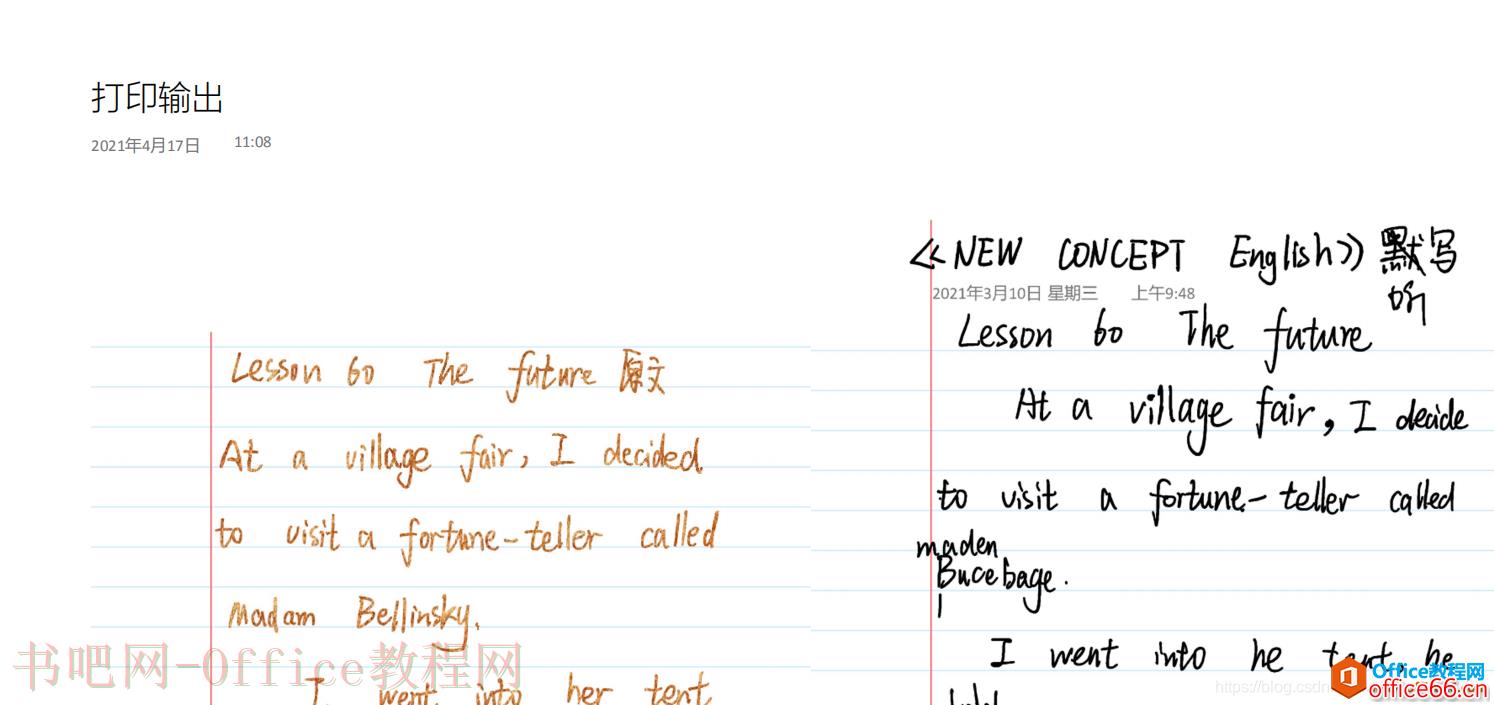 打印输出
2021年4月17日 11:08
Lesson 60 The future 原文
At a village fair, I decided
to visit a fortune-teller called
Madam Bellinsky.
I went into her tent
《NEW CONCEPT English》默写
听
2021年3月10日 星期三 上午9:48
Lesson 60 The future
At a village fair, I decide
to visit a fortune-teller called
maden
Bucebage.
I went into he tent, he
书吧网-Office教程网
https://blog.csdn
Office教程网
office66.cn